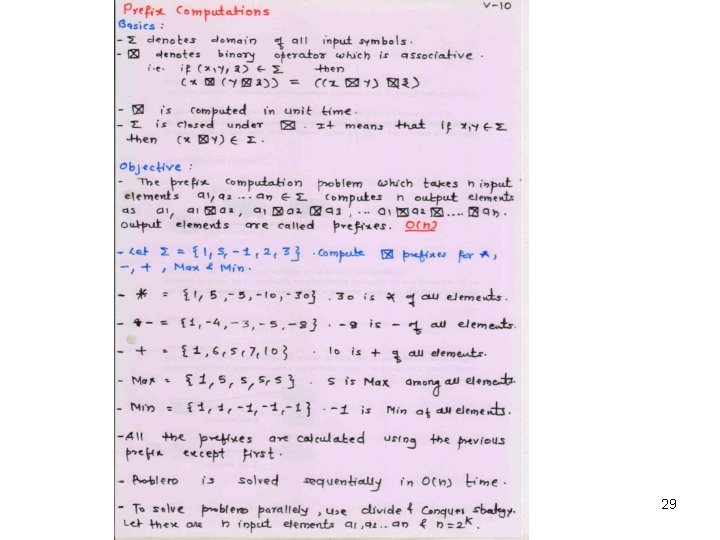 Prefix Computations V-10
Basics :
- Σ denotes domain of all input symbols.
- ⊠ denotes binary operator which is associative.
i.e. if (x,y,z) ∈ Σ then
(x ⊠ (y ⊠ z)) = ((x ⊠ y) ⊠ z)
- ⊠ is computed in unit time.
- Σ is closed under ⊠. It means that if x,y ∈ Σ
then (x ⊠ y) ∈ Σ.
Objective :
- The prefix computation problem which takes n input
elements a1, a2 ... an ∈ Σ computes n output elements
as a1, a1 ⊠ a2, a1 ⊠ a2 ⊠ a3, ... a1 ⊠ a2 ⊠ .... ⊠ an.
output elements are called prefixes. O(n)
- Let Σ = {1, 5, -1, 2, 3}. compute ⊠ prefixes for *,
-, +, Max & Min.
- * = {1, 5, -5, -10, -30}. 30 is * of all elements.
- - = {1, -4, -3, -5, -8}. -8 is - of all elements.
- + = {1, 6, 5, 7, 10}. 10 is + of all elements.
- Max = {1, 5, 5, 5, 5}. 5 is Max among all elements.
- Min = {1, 1, -1, -1, -1}. -1 is Min of all elements.
- All the prefixes are calculated using the previous
prefix except first.
- Problem is solved sequentially in O(n) time.
- To solve problem parallely, use divide & Conquer strategy.
Let there are n input elements a1, a2.. an & n = 2^k.
29